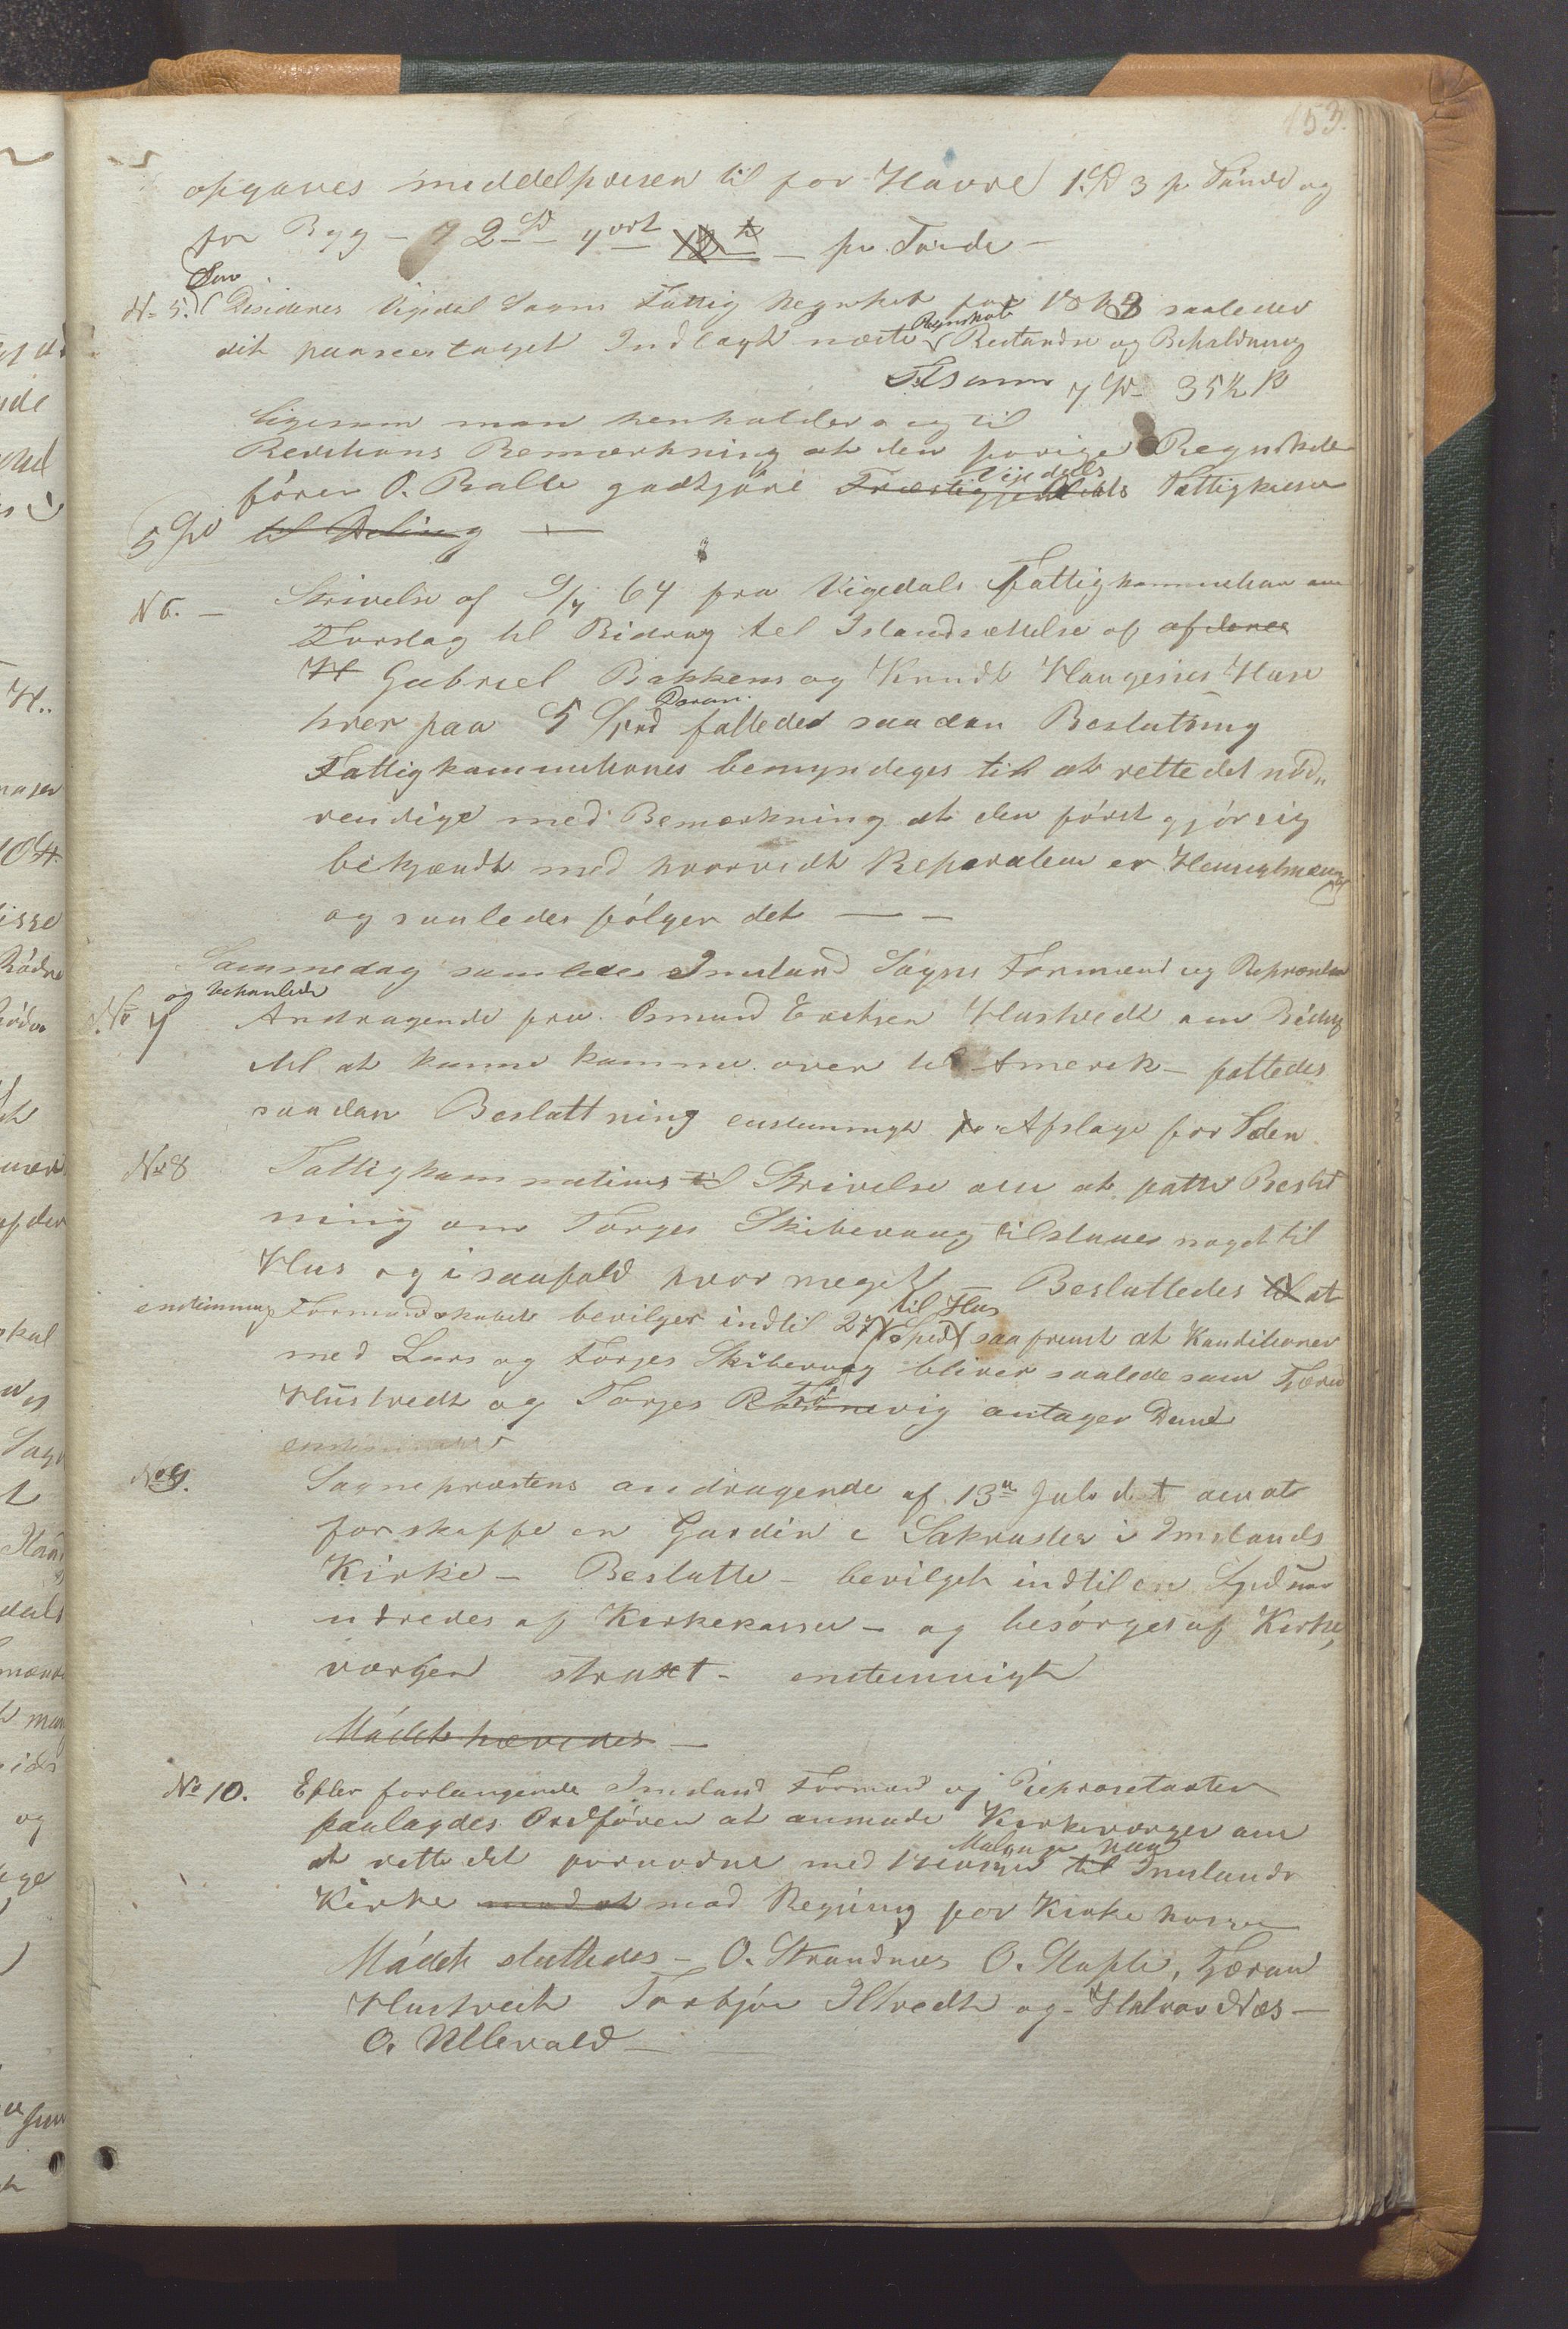 153.
opgaves middelprisen til for Havre 1. Spd 3 pr Tønde og
for Byg - 2 Spd 4 ort pr. Tønde -
No 5. Desideres Vigedal Sogns Fattig Regnskab for 1863 saaledes
dit paaseertaget Indlagt næste Regnskab Restandse og Beholdning
Tilsamen 7 Spd 35 sk
ligesom man henholder sig til
Revisions Bemærkning at den forige Regnskabs
fører O. Balle godtgjøre Vigedals Fattigkasse
5 Spd til Deling -
N 6. - Skrivelse af 9/7 64 fra Vigedals Fattigkommission om
Forslag til Bidrag til Istandsættelse af afderes
H Gabriel Bakkens og Knudt Haugenes Huse
hver paa 5 Spd Deraf fattedes saadan Beslutning
Fattigkommissionen bemyndiges til at rette det nød„
vendige med Bemærkning at den først gjør sig
bekjændt med hvorvidt Reperation er
og saaledes følger det - -
Sammedag samledes Imsland Sogns Formænd og Repræsentan
og behanlede
No 7 Andragende fra Osmund Erichsen Hustvedt om Bidrag
til at kunne komme over til Amerik - fattedes
saadan Beslattning enstemmigt Afslage for Tiden
No 8 Fattigkommationes til Skrivelse om at fatte Beslut
ning om Torges Skibevaag tilstaaes noget til
Hus og i saafald hvor meget - Besluttedes at
enstemmig Formandskabet bevilger indtil 27 Spd til Hus saafremt at Konditioner
med Lars og Torges Skibevaag bliver saalede som Tjeran
Hustvedt og Torges Rønnevig antager Dend
enstemmigt
No 9. Sognepræstens andragende af 13de Juli d. t om at
forskaffe en Gardin i Sakrastiet i Imslands
Kirke - Beslutte - bevilget indtil en Spd som
udredes af Kirkekassen - og besørges af Kirke,
værgen straxt - enstemmigt
Mødet hævedes -
No 10. Efter forlangende Imsland Formænd og Repræsetanter
paalagdes Ordføren at anmode Kirkeværgen om
at rette det fornødne med Malning til Imslands
Kirke med at mod Regning for Kirke kassen
Mødet sluttedes - O. Strandnæs O. Stople, Tjeran
Hustvedt Torbjør Iltvedt og Halvor Næs -
O. Ullevald -